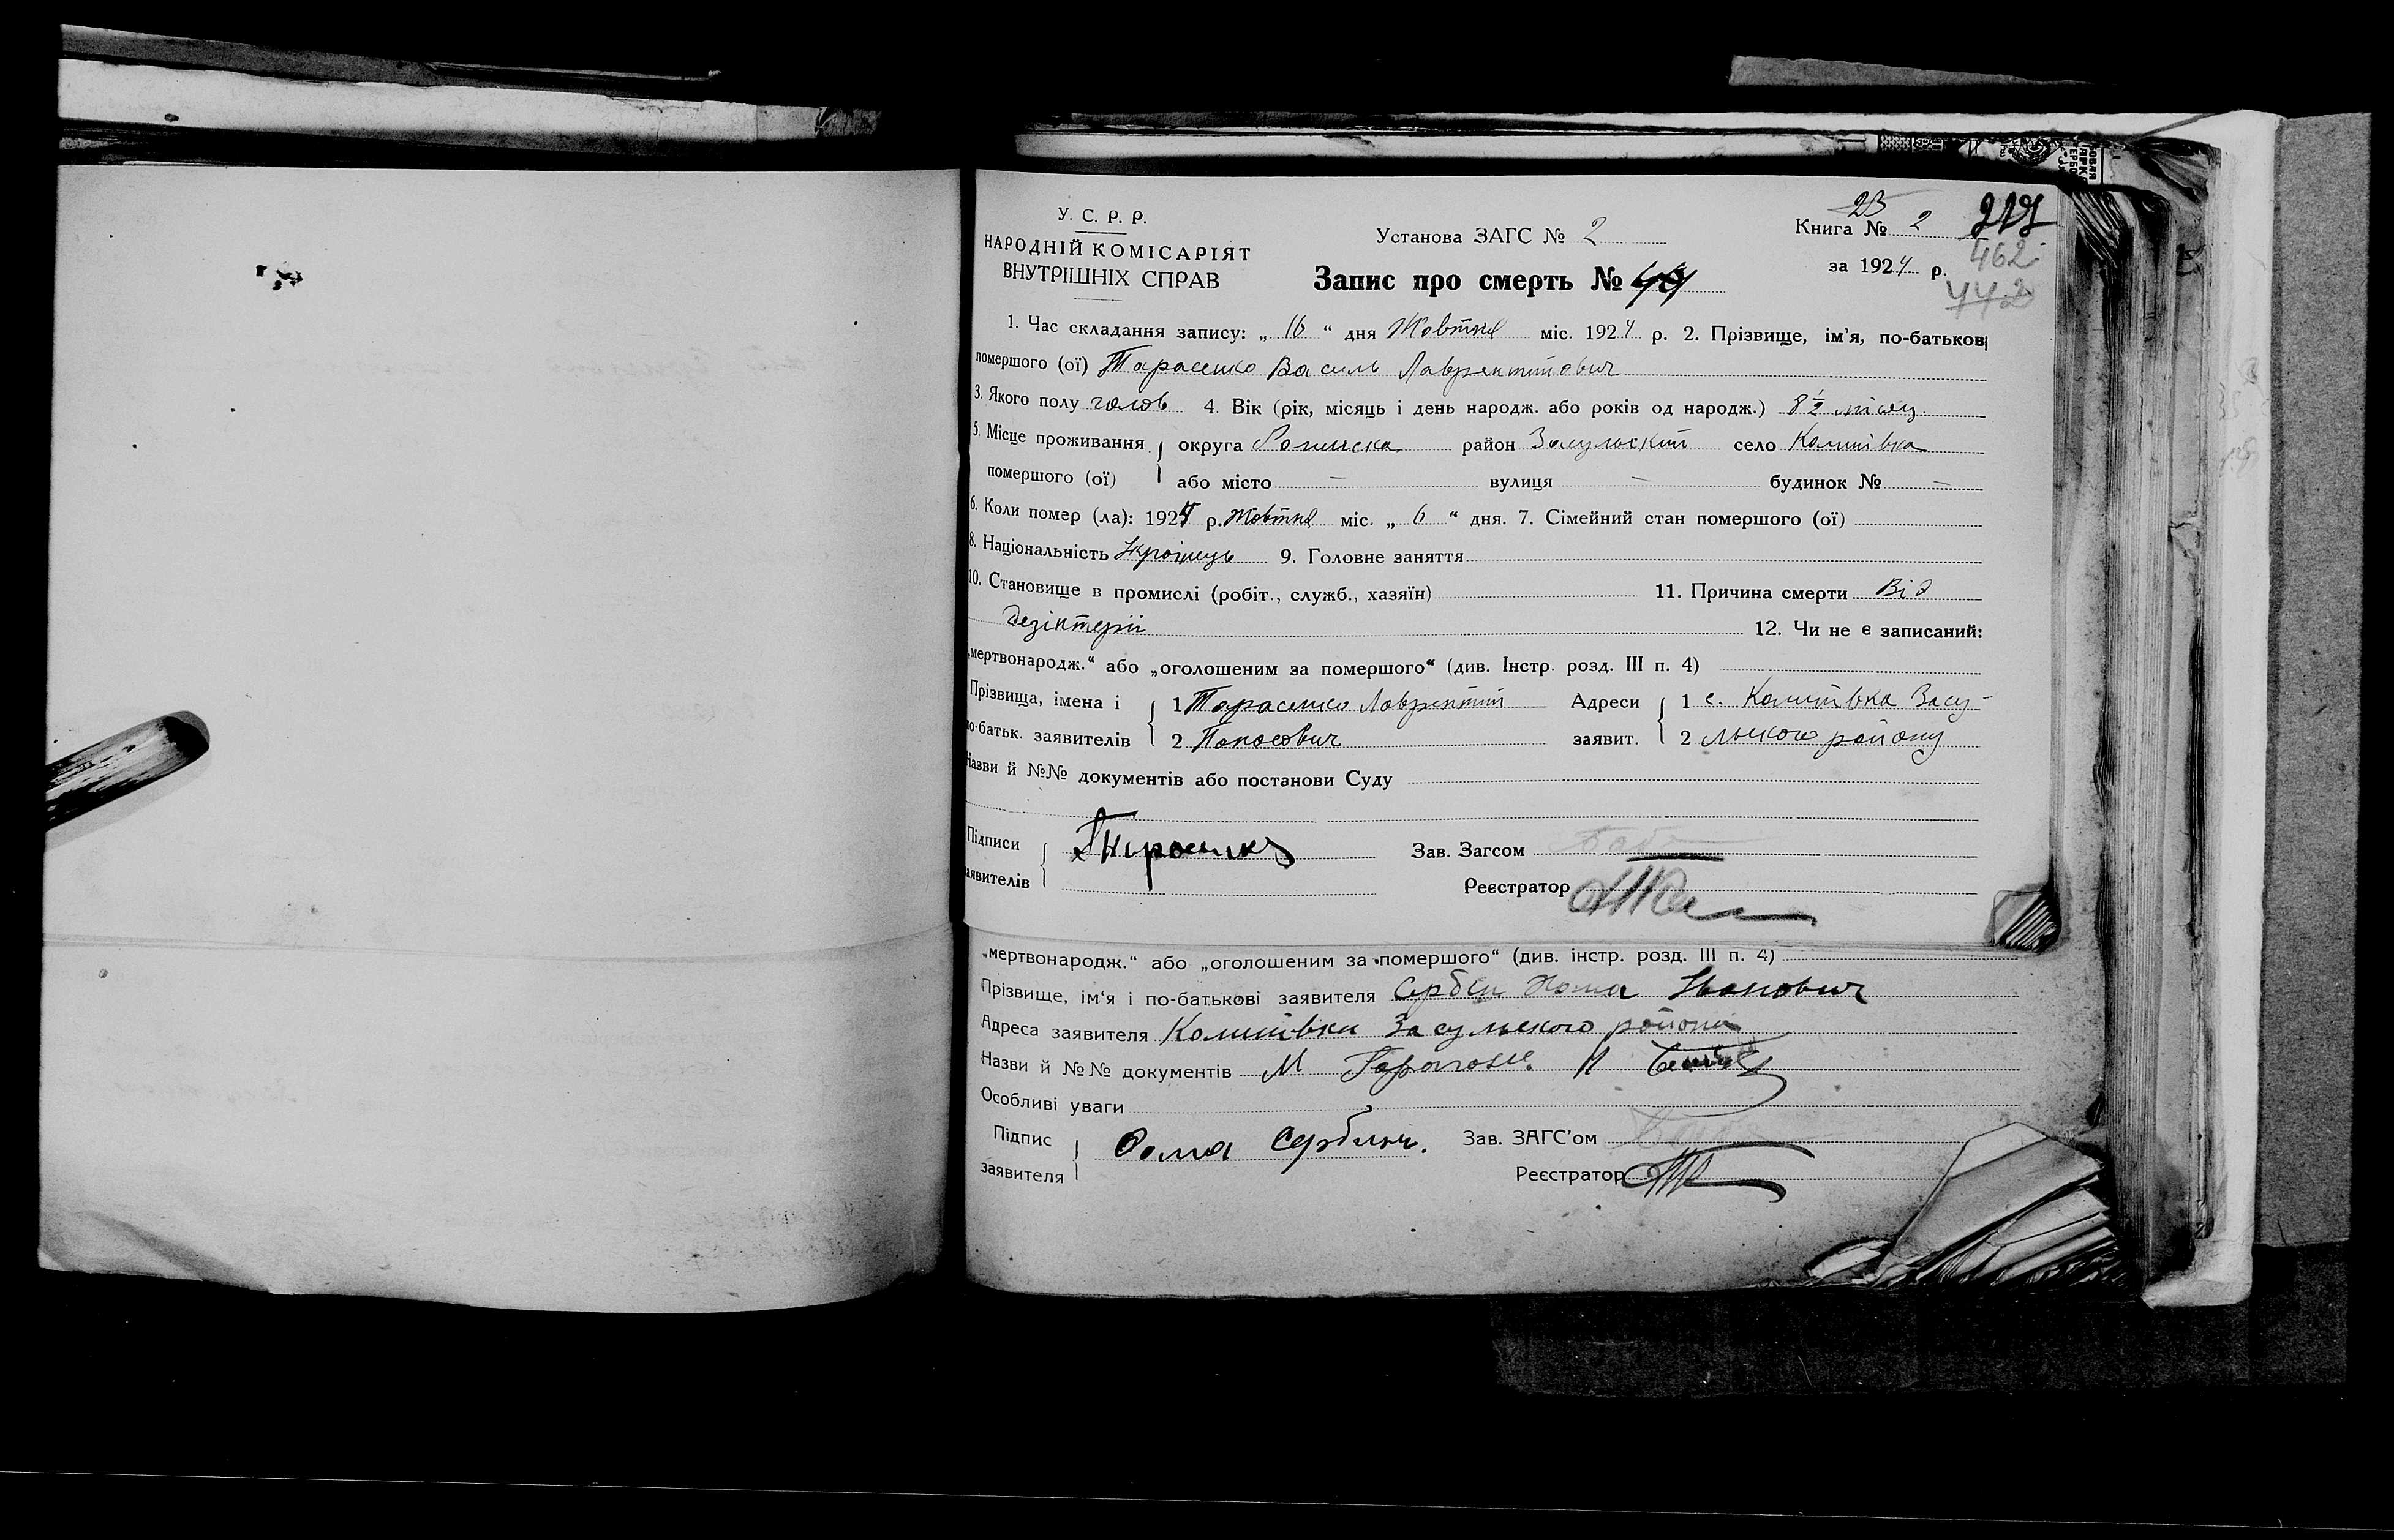 У. С. Р. Р.
НАРОДНІЙ КОМІСАРІЯТ
ВНУТРІШНІХ СПРАВ
Установа ЗАГС № 2
Запис про смерть №
23
Книга № 2
217
за 1924 р.
462
442
1. Час складання запису: „ 16 “ дня Жовтня міс. 1924 р. 2. Прізвище, ім'я, по-батькові
помершого (ої) Тарасенко Василь Лаврентійович
3. Якого полу чолов 4. Вік (рік, місяць і день народж. або років од народж.) 8 ½ місяц.
5. Місце проживання округа Роменска район Засульский село Коптівка
помершого (ої) або місто — вулиця — будинок № —
6. Коли помер (ла): 1924 р. Жовтня міс. „ 6 “ дня. 7. Сімейний стан помершого (ої)
8. Національність Українець 9. Головне заняття
10. Становище в промислі (робіт., служб., хазяїн) 11. Причина смерти Від
дезінтерії 12. Чи не є записаний:
„мертвонародж.“ або „оголошеним за помершого“ (див. Інстр. розд. III п. 4)
Прізвища, імена і 1 Тарасенко Лаврентій Адреси 1 с. Засу-
по-батьк. заявителів 2 заявит. 2 льского району
Назви й №№ документів або постанови Суду
Підписи Зав. Загсом
заявителів Реєстратор
„мертвонародж.“ або „оголошеним за помершого“ (див. інстр. розд. III п. 4)
Прізвище, ім'я і по-батькові заявителя Сербин Хома Іванович
Адреса заявителя Засульского района
Назви й №№ документів
Особливі уваги
Підпис Фома Сербин. Зав. ЗАГС'ом
заявителя Реєстратор